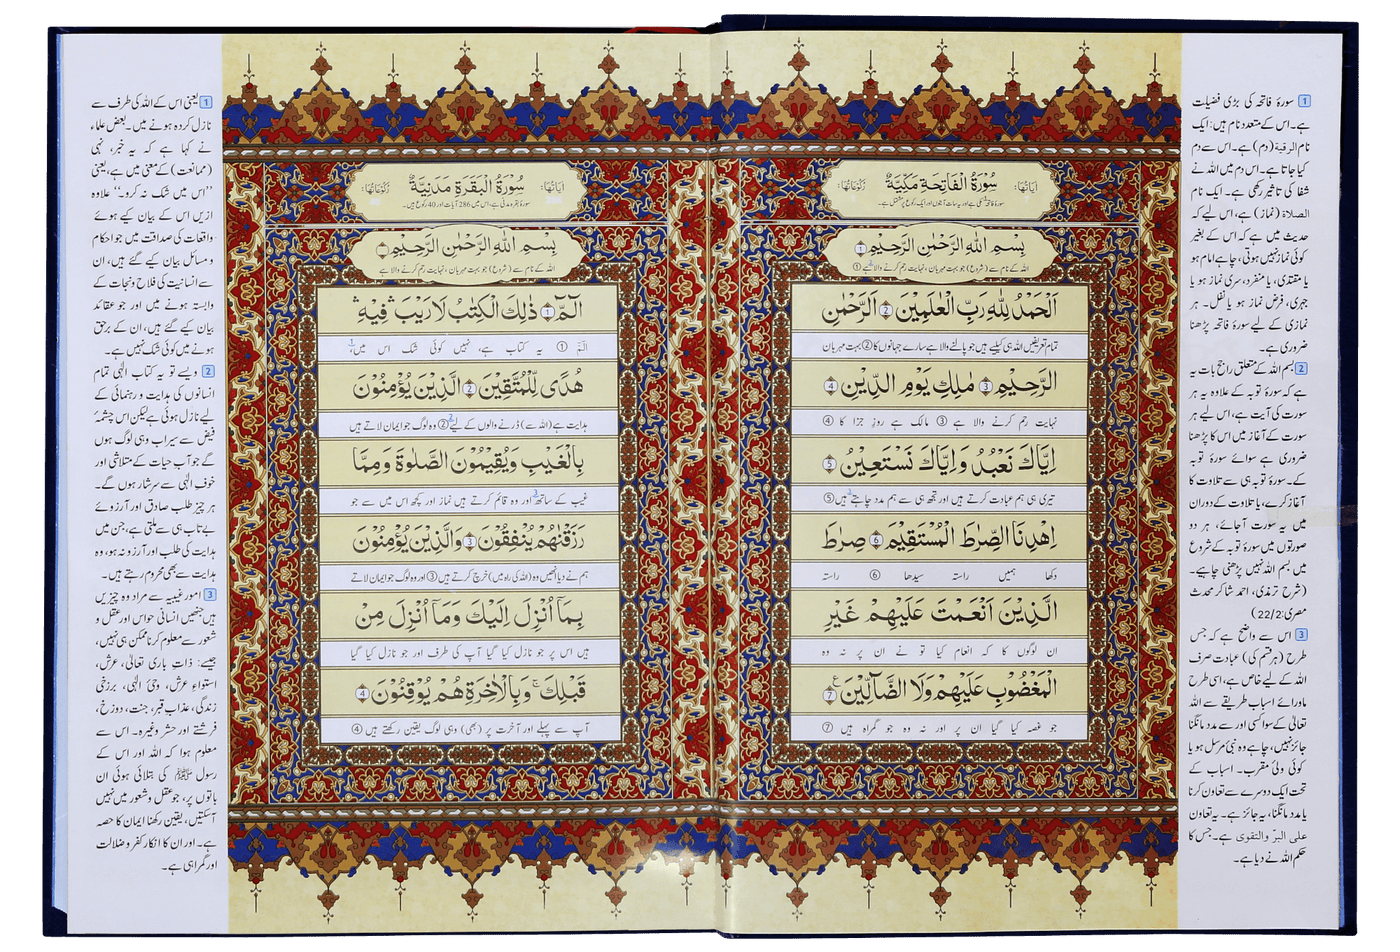 سُوْرَةُ الْفَاتِحَةِ مَكِّيَّةٌ
اٰيَاتُهَا:
رُكُوْعَاتُهَا:
بِسْمِ اللّٰهِ الرَّحْمٰنِ الرَّحِيْمِ ۝1
اللہ کے نام سے (شروع) جو بہت مہربان، نہایت رحم کرنے والا ہے ①
اَلْحَمْدُ لِلّٰهِ رَبِّ الْعٰلَمِيْنَ ۝2 الرَّحْمٰنِ
تمام تعریفیں اللہ ہی کیلیے ہیں جو پالنے والا ہے سارے جہانوں کا ② بہت مہربان
الرَّحِيْمِ ۝3 مٰلِكِ يَوْمِ الدِّيْنِ ۝4
نہایت رحم کرنے والا ہے ③ مالک ہے روزِ جزا کا ④
اِيَّاكَ نَعْبُدُ وَاِيَّاكَ نَسْتَعِيْنُ ۝5
تیری ہی ہم عبادت کرتے ہیں اور تجھ ہی سے ہم مدد چاہتے ہیں ⑤
اِهْدِنَا الصِّرَاطَ الْمُسْتَقِيْمَ ۝6 صِرَاطَ
دکھا ہمیں راستہ سیدھا ⑥ راستہ
الَّذِيْنَ اَنْعَمْتَ عَلَيْهِمْ غَيْرِ
ان لوگوں کا کہ انعام کیا تو نے ان پر نہ وہ
الْمَغْضُوْبِ عَلَيْهِمْ وَلَا الضَّآلِّيْنَ ۝7
جو غصہ کیا گیا ان پر اور نہ وہ جو گمراہ ہیں ⑦
1 سورۂ فاتحہ کی بڑی فضیلت
ہے۔ اس کے متعدد نام ہیں: ایک
نام الرقية (دم) ہے۔ اس سے دم
کیا جاتا ہے۔ اس دم میں اللہ نے
شفا کی تاثیر رکھی ہے۔ ایک نام
الصلاة (نماز) ہے، اس لیے کہ
حدیث میں ہے کہ اس کے بغیر
کوئی نماز نہیں ہوتی، چاہے امام ہو
یا مقتدی، یا منفرد، سری نماز ہو یا
جہری، فرض نماز ہو یا نفل۔ ہر
نمازی کے لیے سورۂ فاتحہ پڑھنا
ضروری ہے۔
2 بسم اللہ کے متعلق راجح بات یہ
ہے کہ سورۂ توبہ کے علاوہ یہ ہر
سورت کی آیت ہے، اس لیے ہر
سورت کے آغاز میں اس کا پڑھنا
ضروری ہے سوائے سورۂ توبہ
کے۔ سورۂ توبہ ہی سے تلاوت کا
آغاز کرے، یا تلاوت کے دوران
میں یہ سورت آجائے، ہر دو
صورتوں میں سورۂ توبہ کے شروع
میں بسم اللہ نہیں پڑھنی چاہیے۔
(شرح ترمذی، احمد شاکر محدث
مصری: 22/2)
3 اس سے واضح ہے کہ جس
طرح (ہر قسم کی) عبادت صرف
اللہ کے لیے خاص ہے، اسی طرح
ماورائے اسباب طریقے سے اللہ
تعالیٰ کے سوا کسی اور سے مدد مانگنا
جائز نہیں، چاہے وہ نبیٔ مرسل ہو یا
کوئی ولیٔ مقرب۔ اسباب کے
تحت ایک دوسرے سے تعاون کرنا
یا مدد مانگنا، یہ جائز ہے۔ یہ تعاون
على البرّ والتقوى ہے۔ جس کا
حکم اللہ نے دیا ہے۔
سُوْرَةُ الْبَقَرَةِ مَدَنِيَّةٌ
اٰيَاتُهَا:
رُكُوْعَاتُهَا:
سورۂ بقرہ مدنی ہے، اس میں 286 آیات اور 40 رکوع ہیں۔
بِسْمِ اللّٰهِ الرَّحْمٰنِ الرَّحِيْمِ
اللہ کے نام سے (شروع) جو بہت مہربان، نہایت رحم کرنے والا ہے
الٓمّٓ ۝1 ذٰلِكَ الْكِتٰبُ لَا رَيْبَ فِيْهِ
الٓمّٓ ① یہ کتاب ہے، نہیں کوئی شک اس میں،1
هُدًى لِّلْمُتَّقِيْنَ ۝2 الَّذِيْنَ يُؤْمِنُوْنَ
ہدایت ہے (اللہ سے) ڈرنے والوں کے لیے2 ② وہ لوگ جو ایمان لاتے ہیں
بِالْغَيْبِ وَيُقِيْمُوْنَ الصَّلٰوةَ وَمِمَّا
غیب کے ساتھ3 اور وہ قائم کرتے ہیں نماز اور کچھ اس میں سے جو
رَزَقْنٰهُمْ يُنْفِقُوْنَ ۝3 وَالَّذِيْنَ يُؤْمِنُوْنَ
ہم نے دیا انھیں وہ (اللہ کی راہ میں) خرچ کرتے ہیں ③ اور وہ لوگ جو ایمان لاتے
بِمَآ اُنْزِلَ اِلَيْكَ وَمَآ اُنْزِلَ مِنْ
ہیں اس پر جو نازل کیا گیا آپ کی طرف اور جو نازل کیا گیا
قَبْلِكَ ۚ وَبِالْاٰخِرَةِ هُمْ يُوْقِنُوْنَ ۝4
آپ سے پہلے اور آخرت پر (بھی) وہی لوگ یقین رکھتے ہیں ④
1 یعنی اس کے اللہ کی طرف سے
نازل کردہ ہونے میں۔ بعض علماء
نے کہا ہے کہ یہ خبر، نہی
(ممانعت) کے معنی میں ہے، یعنی
"اس میں شک نہ کرو۔" علاوہ
ازیں اس کے بیان کیے ہوئے
واقعات کی صداقت میں جو احکام
و مسائل بیان کیے گئے ہیں، ان
سے انسانیت کی فلاح و نجات کے
وابستہ ہونے میں اور جو عقائد
بیان کیے گئے ہیں، ان کے برحق
ہونے میں کوئی شک نہیں ہے۔
2 ویسے تو یہ کتاب الٰہی تمام
انسانوں کی ہدایت و رہنمائی کے
لیے نازل ہوئی ہے لیکن اس چشمۂ
فیض سے سیراب وہی لوگ ہوں
گے جو آب حیات کے متلاشی اور
خوف الٰہی سے سرشار ہوں گے۔
ہر چیز طلب صادق اور آرزوئے
بے تاب ہی سے ملتی ہے، جن میں
ہدایت کی طلب اور آرزو نہ ہو، وہ
ہدایت سے بھی محروم رہتے ہیں۔
3 امور غیبیہ سے مراد وہ چیزیں
ہیں جنھیں انسانی حواس اور عقل و
شعور سے معلوم کرنا ممکن ہی نہیں،
جیسے: ذات باری تعالیٰ، عرش،
استواء عرش، وحیٔ الٰہی، برزخی
زندگی، عذاب قبر، جنت، دوزخ،
فرشتے اور حشر وغیرہ۔ اس سے
معلوم ہوا کہ اللہ اور اس کے
رسول ﷺ کی بتلائی ہوئی ان
باتوں پر، جو عقل و شعور میں نہیں
آسکتیں، یقین رکھنا ایمان کا حصہ
ہے۔ اور ان کا انکار کفر و ضلالت
اور گمراہی ہے۔